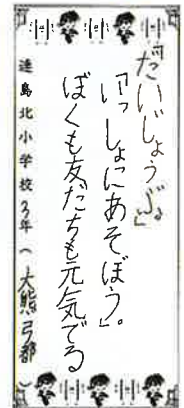 「だいじょうぶ」
「いっしょにあそぼう」。
ぼくも友だちも元気でる
連島北小学校3年（大熊弓都）